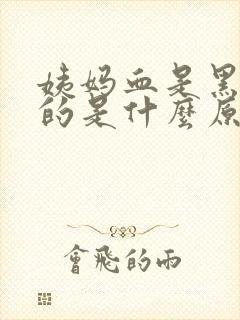 姨妈血是黑
的是什麼原
會飛的雨